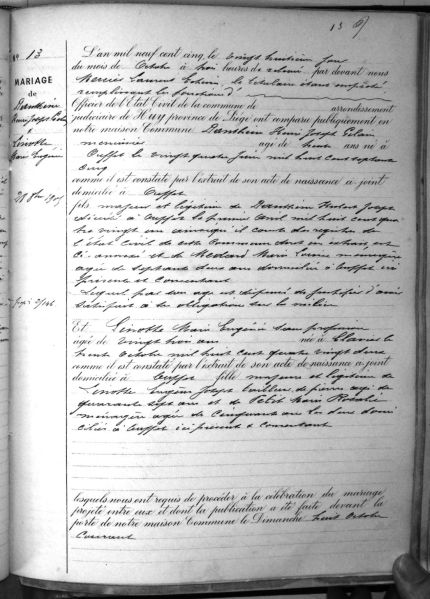 15
N° 13
MARIAGE
de
Danthine
Henri Joseph
&
Linotte
Marie Eugénie
28 8bre 1905
L'an mil neuf cent cinq le vingt huitième jour
du mois de Octobre à trois heures de relevée par devant nous
Mercier Laurent Echevin,
remplissant les fonctions d'
Officier de l'État Civil de la commune de arrondissement
judiciaire de HUY province de Liége ont comparu publiquement en
notre maison Commune Danthine Henri Joseph
menuisier agé de trente ans né à
Ouffet le vingt quatre juin mil huit cent septante
cinq
comme il est constaté par l'extrait de son acte de naissance ci-joint
domicilié à Ouffet
fils majeur et légitime de Danthine Joseph
décédé à Ouffet le premier avril mil huit cent quatre
vingt un ainsi qu'il conste du registre de
l'état civil de cette Commune dont un extrait est
ci annexé et de Médard Marie ménagère
agée de septante deux ans domiciliée à Ouffet ici
présente et Consentant
Lequel par son age est dispensé de justifier d'avoir
satisfait à ses obligations sur la milice
Et Linotte Marie Eugénie sans profession
agée de vingt trois ans née à
trente Octobre mil huit cent quatre vingt deux
comme il est constaté par l'extrait de son acte de naissance ci-joint
domiciliée à Ouffet fille majeure et légitime de
Linotte Eugène Joseph tailleur de pierres agé de
quarante sept ans et de Petit Marie Rosalie
ménagère agée de Cinquante ans les deux domiciliés
à Ouffet ici présents & consentant
lesquels nous ont requis de procéder à la célébration du mariage
projeté entre eux et dont la publication a été faite devant la
porte de notre maison Commune le Dimanche huit Octobre
Courant